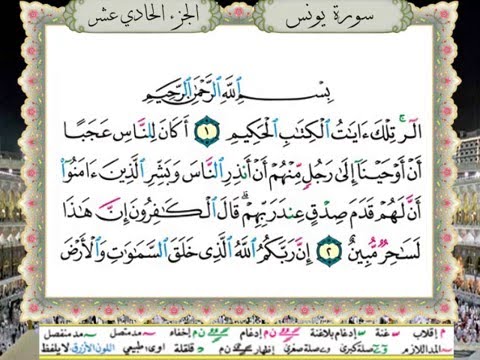 سورة يونس
الجزء الحادي عشر
بِسْمِ ٱللَّهِ ٱلرَّحْمَٰنِ ٱلرَّحِيمِ
الٓر ۚ تِلْكَ ءَايَٰتُ ٱلْكِتَٰبِ ٱلْحَكِيمِ ١ أَكَانَ لِلنَّاسِ عَجَبًا
أَنْ أَوْحَيْنَآ إِلَىٰ رَجُلٍ مِّنْهُمْ أَنْ أَنذِرِ ٱلنَّاسَ وَبَشِّرِ ٱلَّذِينَ ءَامَنُوٓا۟
أَنَّ لَهُمْ قَدَمَ صِدْقٍ عِندَ رَبِّهِمْ ۗ قَالَ ٱلْكَٰفِرُونَ إِنَّ هَٰذَا
لَسَٰحِرٌ مُّبِينٌ ٢ إِنَّ رَبَّكُمُ ٱللَّهُ ٱلَّذِى خَلَقَ ٱلسَّمَٰوَٰتِ وَٱلْأَرْضَ
م إقلاب غنة إدغام بلاغنة إدغام إخفاء مد متصل مد منفصل
المد اللازم صلة كبرى صلة صغرى إظهار قلقلة طبيعي اللون الأزرق لا يلفظ